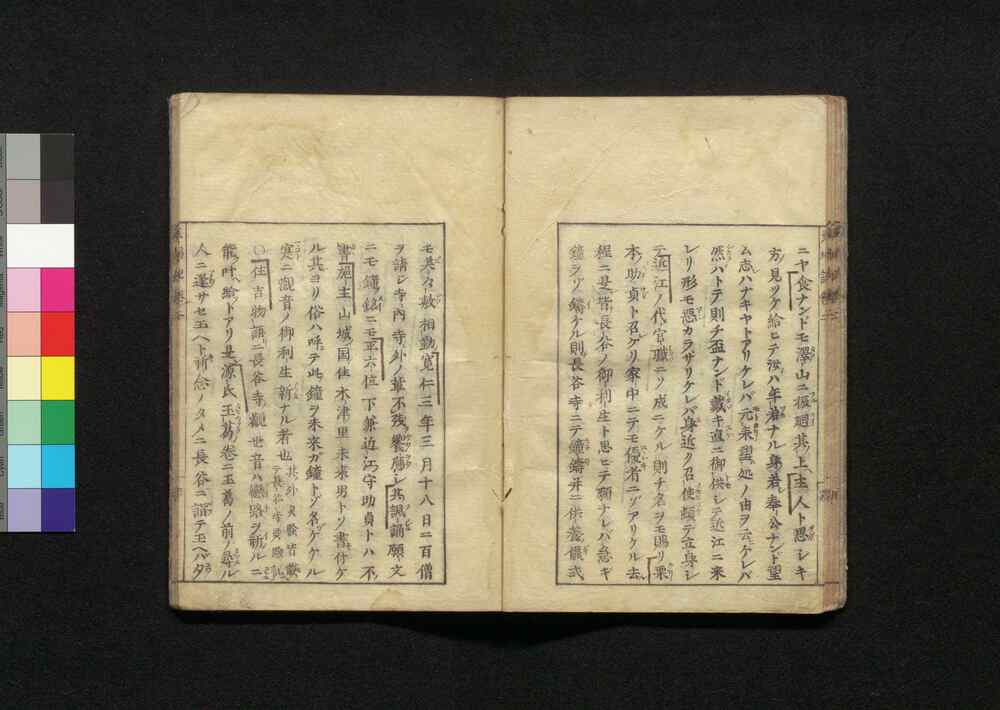 ニヤ食ナンドモ澤山ニ扱廻其上主人ト思シキ
方ノ見ツケ給ヒテ汝ハ年若ナル身若奉公ナンド望
ム志ハナキヤトアリケレバ元来望処ノ由ヲ云ケレバ
然ハトテ則チ盃ナンド戴キ直ニ御供シテ近江ニ来
レリ形モ悪カラザリケレバ身近ク召使頻テ立身シ
テ近江ノ代官職ニソ成ニケル則チ名ヲモ賜リ果
木ノ助貞ト召ケリ家中ニテモ優者ニゾアリケル去
程ニ是皆長谷ノ御利生ト思ヒテ願ナレバ急キ
鐘ヲゾ鑄ケル則長谷寺ニテ鐘鑄并ニ供養儀式
モ其々敷相勤寛仁三年三月十八日ニ百僧
ヲ請シ寺内寺外ノ輩不残饗應シ其諷誦願文
ニモ鐘ノ銘ニモ平六位下兼近江守助貞トハ不
書施主山城国住木津里未来男トソ書付ケ
ル其ヨリ俗ハ呼テ此鐘ヲ未来ガ鐘トゾ名ヅケケル
寔ニ観音ノ御利生新ナル者也
○住吉物語ニ長谷寺觀世音ハ戀路ヲ祈ルニ
能叶給トアリ是源氏玉葛巻ニ玉葛ノ前ノ尋ル
人ニ逢サセ玉ヘト祈念ノタメニ長谷ニ詣テ玉ヘバタ